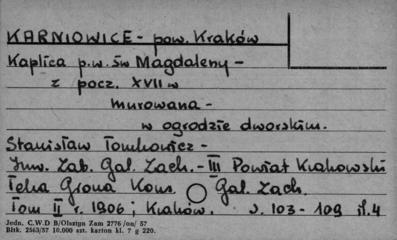 KARNIOWICE - pow. Kraków
Kaplica p.w. św Magdaleny -
z pocz. XVII w
murowana -
w ogrodzie dworskim.
Stanisław Tomkowicz -
Inw. Zab. Gal. Zach. - III Powiat Krakowski
Teka Grona Kons. Gal. Zach.
Tom II r. 1906; Kraków. s. 103 - 109 il. 4
Jedn. C.W.D B/Olsztyn Zam 2776/on/57
Bltk. 2563/57 10.000 szt. karton kl. 7 g 220.